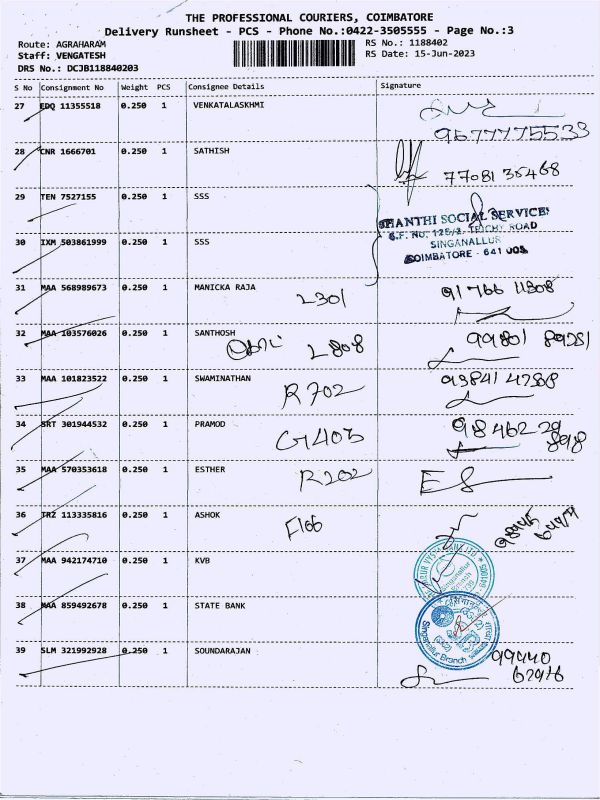 THE PROFESSIONAL COURIERS, COIMBATORE
Delivery Runsheet - PCS - Phone No.:0422-3505555 - Page No.:3
Route: AGRAHARAM
RS No.: 1188402
Staff: VENGATESH
RS Date: 15-Jun-2023
DRS No.: DCJB118840203
S No Consignment No Weight PCS Consignee Details Signature
27 EDQ 11355518 0.250 1 VENKATALASKHMI
9677775533
28 CNR 1666701 0.250 1 SATHISH
77081 35468
29 TEN 7527155 0.250 1 SSS
SHANTHI SOCIAL SERVICES
S.F. No. 125/2, TRICHY ROAD
30 IXM 503861999 0.250 1 SSS
SINGANALLUR
COIMBATORE - 641 005
31 MAA 568989673 0.250 1 MANICKA RAJA L301 91766 11808
32 MAA 103576026 0.250 1 SANTHOSH L808 99801 89251
33 MAA 101823522 0.250 1 SWAMINATHAN R702 93841 47508
34 SRT 301944532 0.250 1 PRAMOD G403 98462 29
898
35 MAA 570353618 0.250 1 ESTHER R202
36 TRZ 113335816 0.250 1 ASHOK F166
37 MAA 942174710 0.250 1 KVB
Singanallur
Branch
38 MAA 859492678 0.250 1 STATE BANK
Singanallur Branch
39 SLM 321992928 0.250 1 SOUNDARAJAN 99440
62916